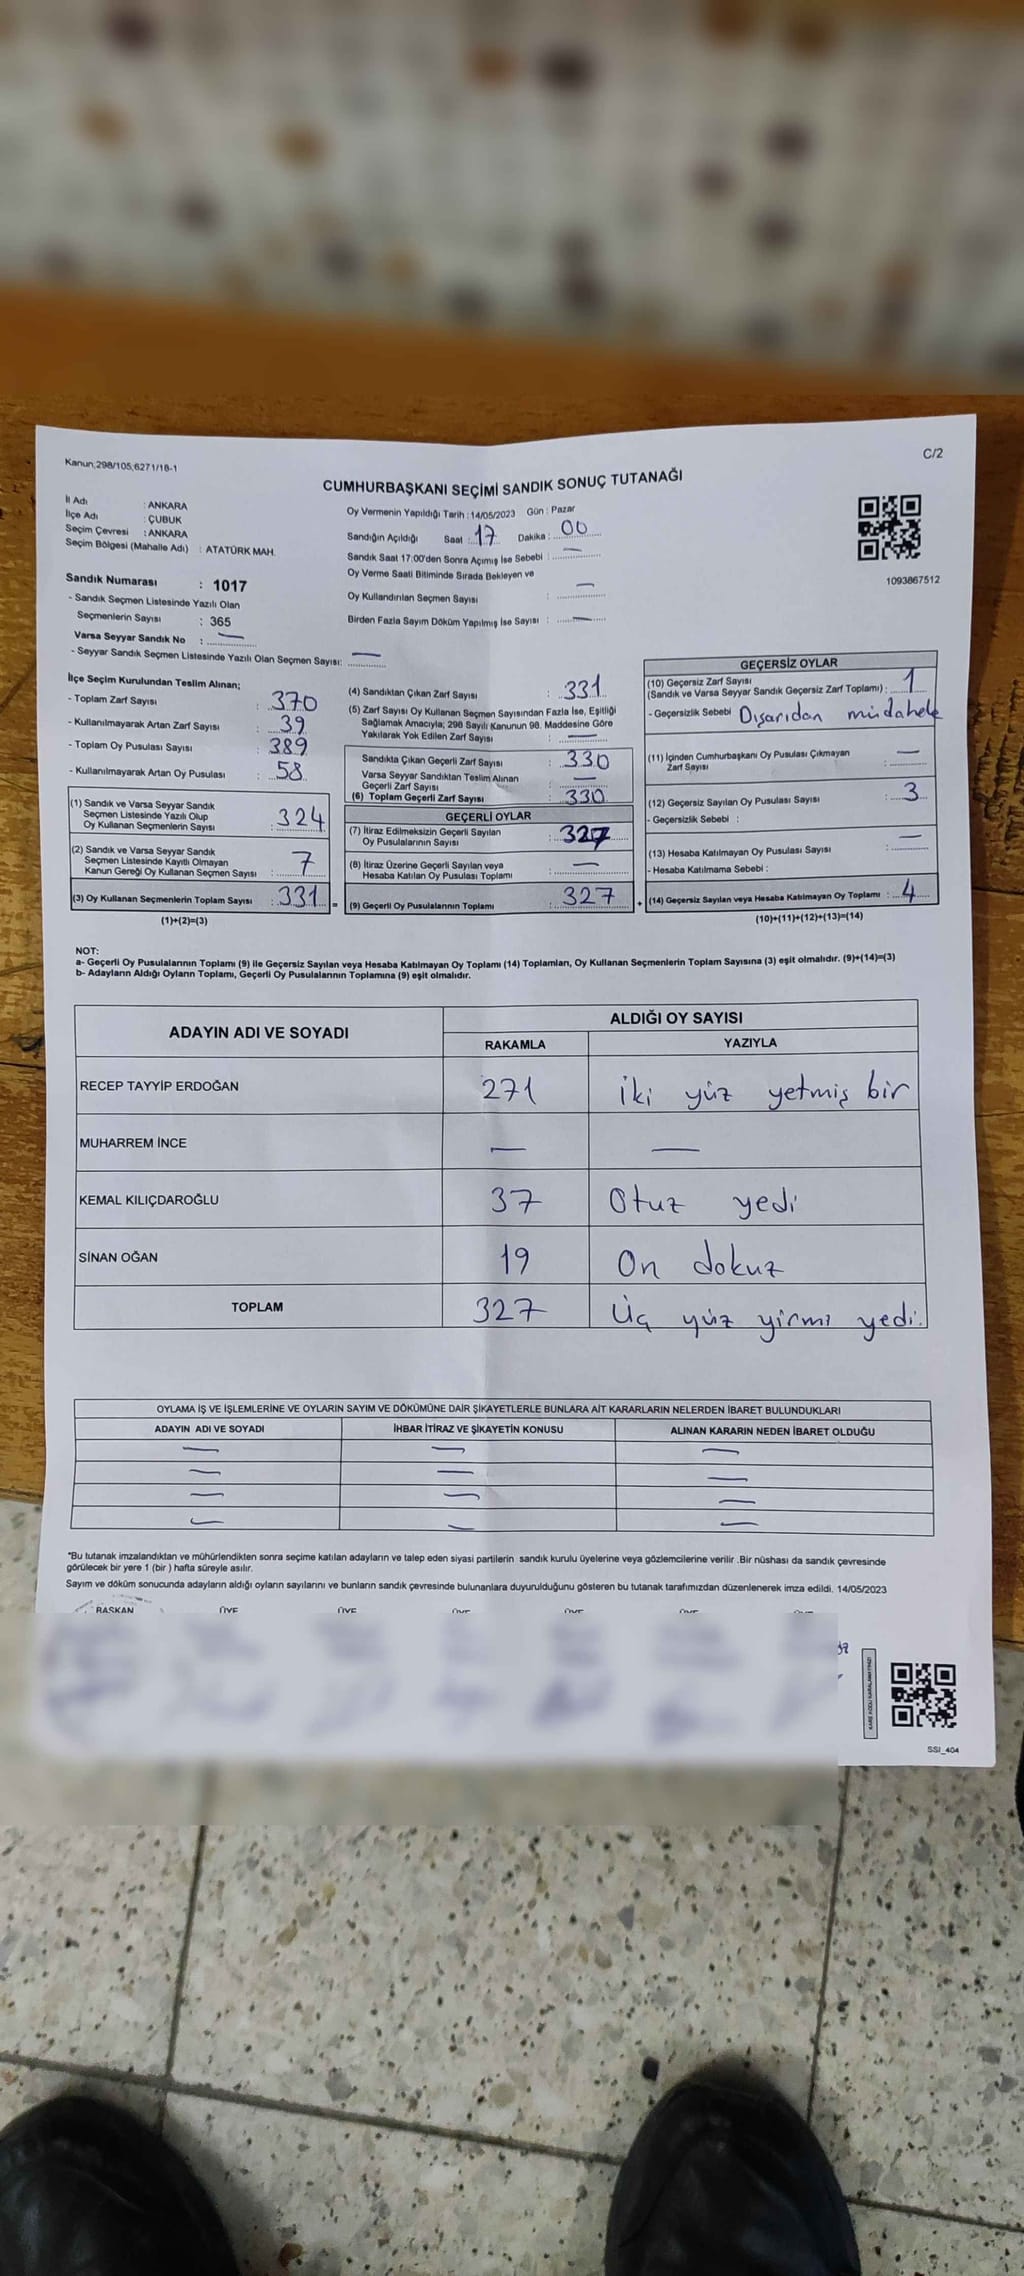 Kanun;298/105,6271/18-1
C/2
CUMHURBAŞKANI SEÇİMİ SANDIK SONUÇ TUTANAĞI
İl Adı : ANKARA
İlçe Adı : ÇUBUK
Seçim Çevresi : ANKARA
Seçim Bölgesi (Mahalle Adı) : ATATÜRK MAH.
Sandık Numarası : 1017
- Sandık Seçmen Listesinde Yazılı Olan
Seçmenlerin Sayısı : 365
Varsa Seyyar Sandık No : —
- Seyyar Sandık Seçmen Listesinde Yazılı Olan Seçmen Sayısı: —
Oy Vermenin Yapıldığı Tarih : 14/05/2023 Gün : Pazar
Sandığın Açıldığı Saat : 17 Dakika : 00
Sandık Saat 17:00'den Sonra Açımış İse Sebebi : —
Oy Verme Saati Bitiminde Sırada Bekleyen ve
Oy Kullandırılan Seçmen Sayısı : —
Birden Fazla Sayım Döküm Yapılmış İse Sayısı : —
1093867512
İlçe Seçim Kurulundan Teslim Alınan;
- Toplam Zarf Sayısı : 370
- Kullanılmayarak Artan Zarf Sayısı : 39
- Toplam Oy Pusulası Sayısı : 389
- Kullanılmayarak Artan Oy Pusulası : 58
(1) Sandık ve Varsa Seyyar Sandık
Seçmen Listesinde Yazılı Olup
Oy Kullanan Seçmenlerin Sayısı : 324
(2) Sandık ve Varsa Seyyar Sandık
Seçmen Listesinde Kayıtlı Olmayan
Kanun Gereği Oy Kullanan Seçmen Sayısı : 7
(3) Oy Kullanan Seçmenlerin Toplam Sayısı : 331 =
(1)+(2)=(3)
(4) Sandıktan Çıkan Zarf Sayısı : 331
(5) Zarf Sayısı Oy Kullanan Seçmen Sayısından Fazla İse, Eşitliği
Sağlamak Amacıyla; 298 Sayılı Kanunun 98. Maddesine Göre
Yakılarak Yok Edilen Zarf Sayısı : —
Sandıkta Çıkan Geçerli Zarf Sayısı : 330
Varsa Seyyar Sandıktan Teslim Alınan
Geçerli Zarf Sayısı : —
(6) Toplam Geçerli Zarf Sayısı : 330
GEÇERLİ OYLAR
(7) İtiraz Edilmeksizin Geçerli Sayılan
Oy Pusulalarının Sayısı : 327
(8) İtiraz Üzerine Geçerli Sayılan veya
Hesaba Katılan Oy Pusulası Toplamı : —
(9) Geçerli Oy Pusulalarının Toplamı : 327 +
GEÇERSİZ OYLAR
(10) Geçersiz Zarf Sayısı
(Sandık ve Varsa Seyyar Sandık Geçersiz Zarf Toplamı) : 1
- Geçersizlik Sebebi Dışarıdan müdahele
(11) İçinden Cumhurbaşkanı Oy Pusulası Çıkmayan
Zarf Sayısı : —
(12) Geçersiz Sayılan Oy Pusulası Sayısı : 3
- Geçersizlik Sebebi :
(13) Hesaba Katılmayan Oy Pusulası Sayısı : —
- Hesaba Katılmama Sebebi :
(14) Geçersiz Sayılan veya Hesaba Katılmayan Oy Toplamı : 4
(10)+(11)+(12)+(13)=(14)
NOT:
a- Geçerli Oy Pusulalarının Toplamı (9) ile Geçersiz Sayılan veya Hesaba Katılmayan Oy Toplamı (14) Toplamları, Oy Kullanan Seçmenlerin Toplam Sayısına (3) eşit olmalıdır. (9)+(14)=(3)
b- Adayların Aldığı Oyların Toplamı, Geçerli Oy Pusulalarının Toplamına (9) eşit olmalıdır.
ADAYIN ADI VE SOYADI
ALDIĞI OY SAYISI
RAKAMLA YAZIYLA
RECEP TAYYİP ERDOĞAN 271 iki yüz yetmiş bir
MUHARREM İNCE — —
KEMAL KILIÇDAROĞLU 37 Otuz yedi
SİNAN OĞAN 19 On dokuz
TOPLAM 327 Üç yüz yirmi yedi.
OYLAMA İŞ VE İŞLEMLERİNE VE OYLARIN SAYIM VE DÖKÜMÜNE DAİR ŞİKAYETLERLE BUNLARA AİT KARARLARIN NELERDEN İBARET BULUNDUKLARI
ADAYIN ADI VE SOYADI İHBAR İTİRAZ VE ŞİKAYETİN KONUSU ALINAN KARARIN NEDEN İBARET OLDUĞU
— — —
— — —
— — —
— — —
*Bu tutanak imzalandıktan ve mühürlendikten sonra seçime katılan adayların ve talep eden siyasi partilerin sandık kurulu üyelerine veya gözlemcilerine verilir .Bir nüshası da sandık çevresinde
görülecek bir yere 1 (bir ) hafta süreyle asılır.
Sayım ve döküm sonucunda adayların aldığı oyların sayılarını ve bunların sandık çevresinde bulunanlara duyurulduğunu gösteren bu tutanak tarafımızdan düzenlenerek imza edildi. 14/05/2023
BAŞKAN ÜYE ÜYE ÜYE ÜYE ÜYE ÜYE
KARE KODU KARALAMAYINIZ!
SSI_404